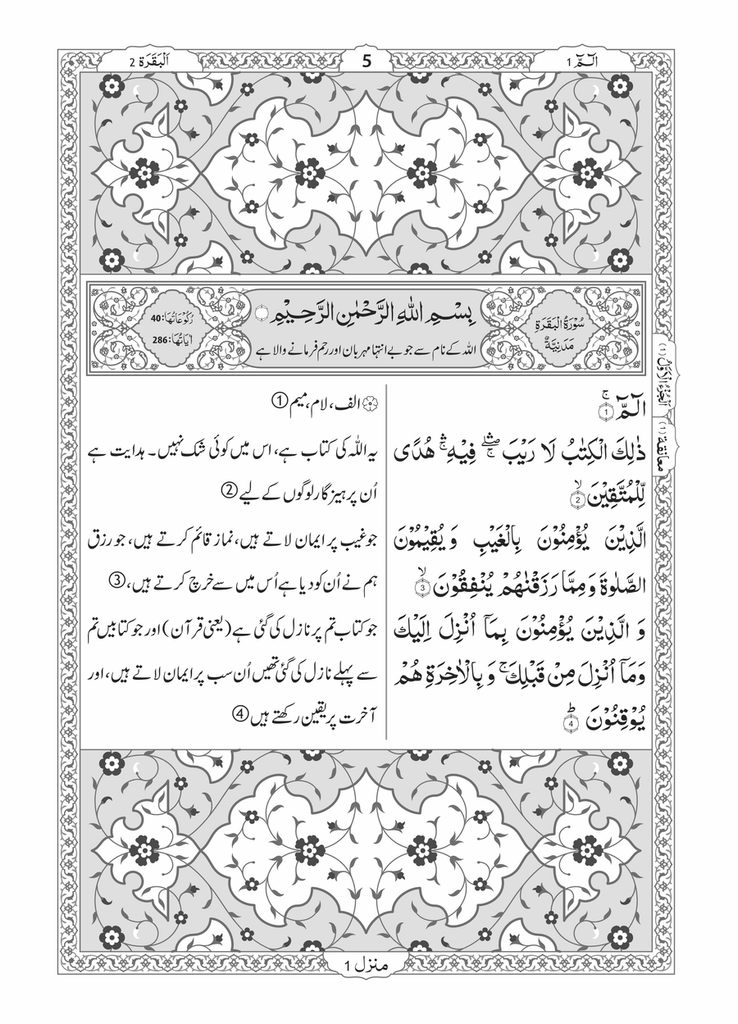 الٓـمّٓ 1
5
اَلْبَقَرَة 2
سُوْرَةُ الْبَقَرَةِ
مَدَنِيَّةٌ
بِسْمِ اللّٰهِ الرَّحْمٰنِ الرَّحِيْمِ
اللہ کے نام سے جو بے انتہا مہربان اور رحم فرمانے والا ہے
رُكُوْعَاتُهَا: 40
اٰيَاتُهَا: 286
الٓـمّٓ ۚ 1
ذٰلِكَ الْكِتٰبُ لَا رَيْبَ ۛۖ فِيْهِ ۛۚ هُدًى
لِّلْمُتَّقِيْنَ ۙ 2
الَّذِيْنَ يُؤْمِنُوْنَ بِالْغَيْبِ وَيُقِيْمُوْنَ
الصَّلٰوةَ وَمِمَّا رَزَقْنٰهُمْ يُنْفِقُوْنَ ۙ 3
وَ الَّذِيْنَ يُؤْمِنُوْنَ بِمَاۤ اُنْزِلَ اِلَيْكَ
وَمَاۤ اُنْزِلَ مِنْ قَبْلِكَ ۚ وَ بِالْاٰخِرَةِ هُمْ
يُوْقِنُوْنَ ؕ 4
الف، لام، میم ①
یہ اللہ کی کتاب ہے، اس میں کوئی شک نہیں۔ ہدایت ہے
اُن پرہیزگار لوگوں کے لیے ②
جو غیب پر ایمان لاتے ہیں، نماز قائم کرتے ہیں، جو رزق
ہم نے اُن کو دیا ہے اُس میں سے خرچ کرتے ہیں، ③
جو کتاب تم پر نازل کی گئی ہے (یعنی قرآن) اور جو کتابیں تم
سے پہلے نازل کی گئی تھیں اُن سب پر ایمان لاتے ہیں، اور
آخرت پر یقین رکھتے ہیں ④
اَلْجُزْءُ الْاَوَّلُ (1)
معانقة (1)
منزل 1